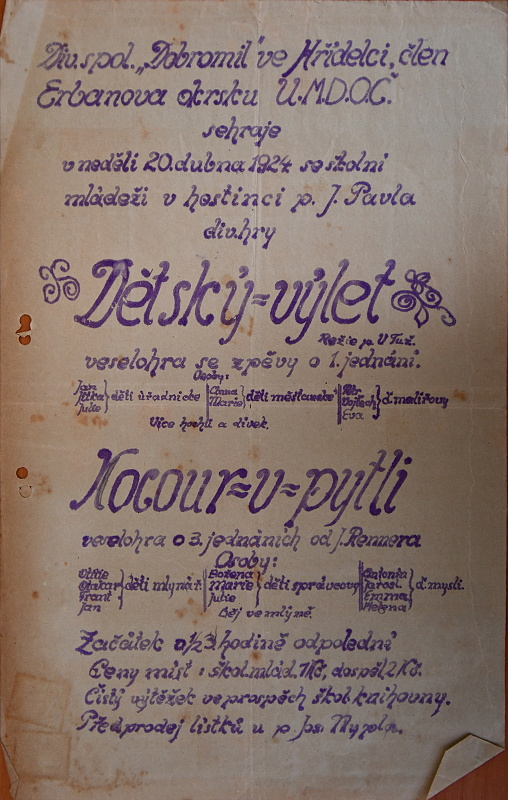 Div. spol. „Dobromil" ve Hřídelci, člen
Erbanova okrsku Ú.M.D.O.Č.
sehraje
v neděli 20. dubna 1924 se školní
mládeži v hostinci p. J. Pavla
div. hry
Dětský=výlet
Režie p. V Tuž.
veselohra se zpěvy o 1. jednání.
Osoby:
Jan
Jitka
Julie
děti úřadnické
Anna
Marie
děti měšťanské
Petr
Vojtěch
Eva
d. malířovy
Více hochů a dívek.
Kocour=v=pytli
veselohra o 3. jednáních od J. Rennera
Osoby:
Otilie
Otakar
Frant
Jan
děti mlynář.
Božena
Marie
Julie
děti správcovy
Antonín
Jarosl.
Emma
Helena
d. mysli.
Děj ve mlýně.
Začátek o ½3 hodině odpolední
Ceny míst: škol. mlád. 1 Kč, dospěl. 2 Kč.
Čistý výtěžek ve prospěch škol. knihovny.
Předprodej lístků u p. Jos.